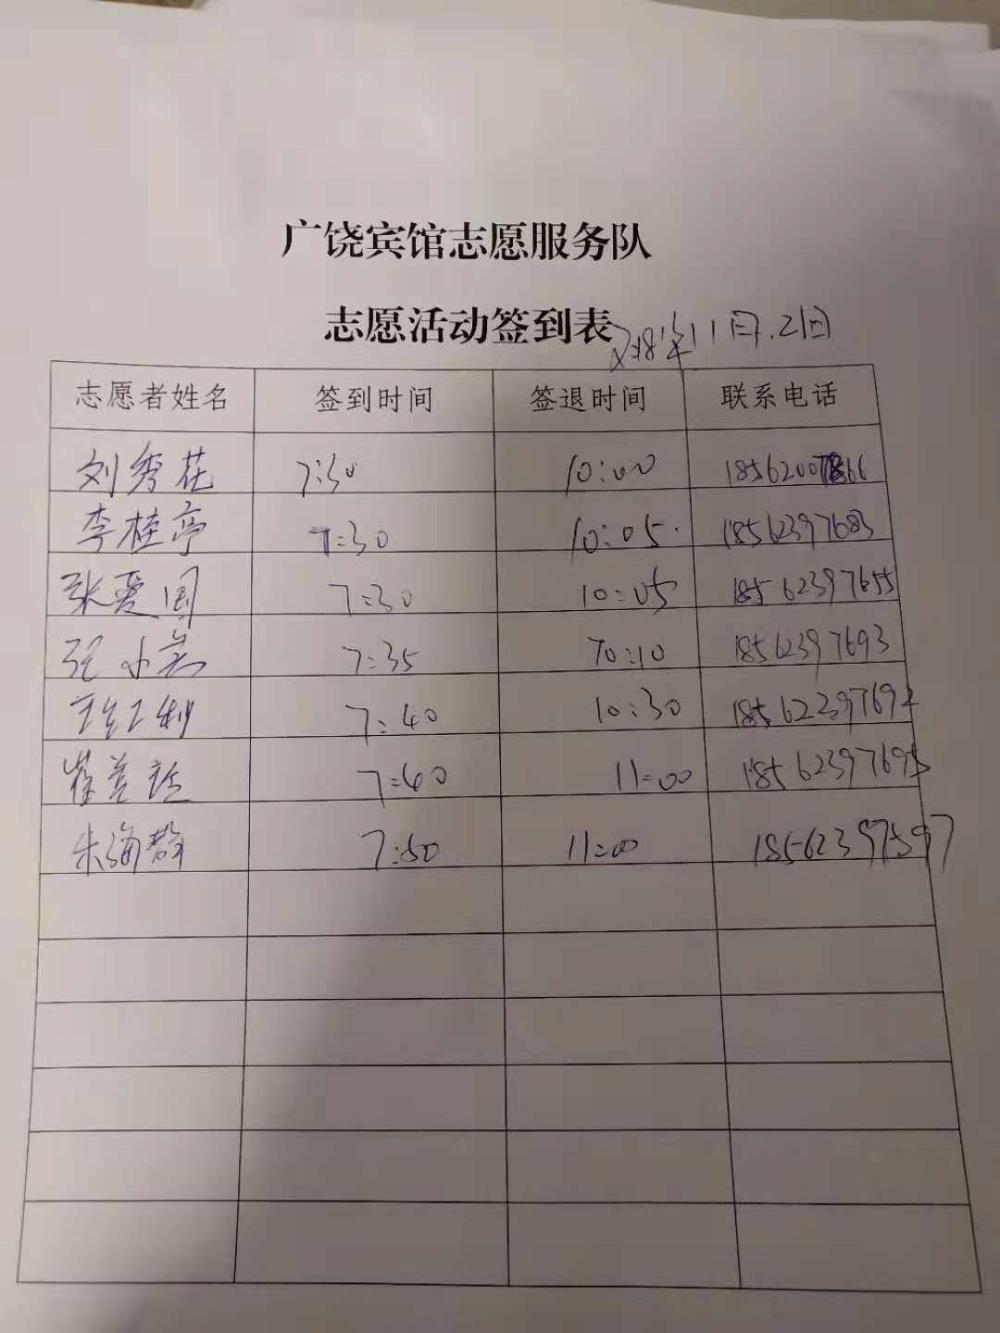 广饶宾馆志愿服务队
志愿活动签到表 2018年11月.21日
志愿者姓名 签到时间 签退时间 联系电话
刘秀花 7:30 10:00 18562007866
李桂亭 7:30 10:05. 18562397683
张爱国 7:30 10:05 18562397655
张小美 7:35 10:10 18562397693
7:40 10:30
崔善 7:40 11:00 18562397695
朱海群 7:50 11:00 18562397597